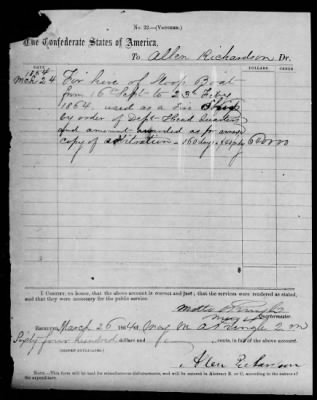 No. 22.—(Voucher.)
The Confederate States of America,
To Allen Richardson Dr.
DATE. DOLLARS. CENTS.
1864
Mch 24 For hire of Boat
from 16th Sept to 23d Feby
1864 used as a Fire
by order of Dept Head Quarters
and amount awarded as per
copy of arbitration - 160 days 6400 00
I Certify, on honor, that the above account is correct and just; that the services were rendered as stated,
and that they were necessary for the public service.
Motte A Pringle
Quartermaster.
Received, March 26 1864, of Maj M A Pringle Q M
Sixty four hundred dollars and cents, in full of the above account.
(SIGNED DUPLICATES.)
Allen Richardson
Note.—This form will be used for miscellaneous disbursements, and will be entered in Abstract B. or C. according to the nature of
the expenditure.